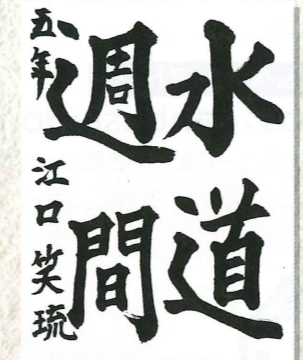 水道
週間
五年 江口笑琉